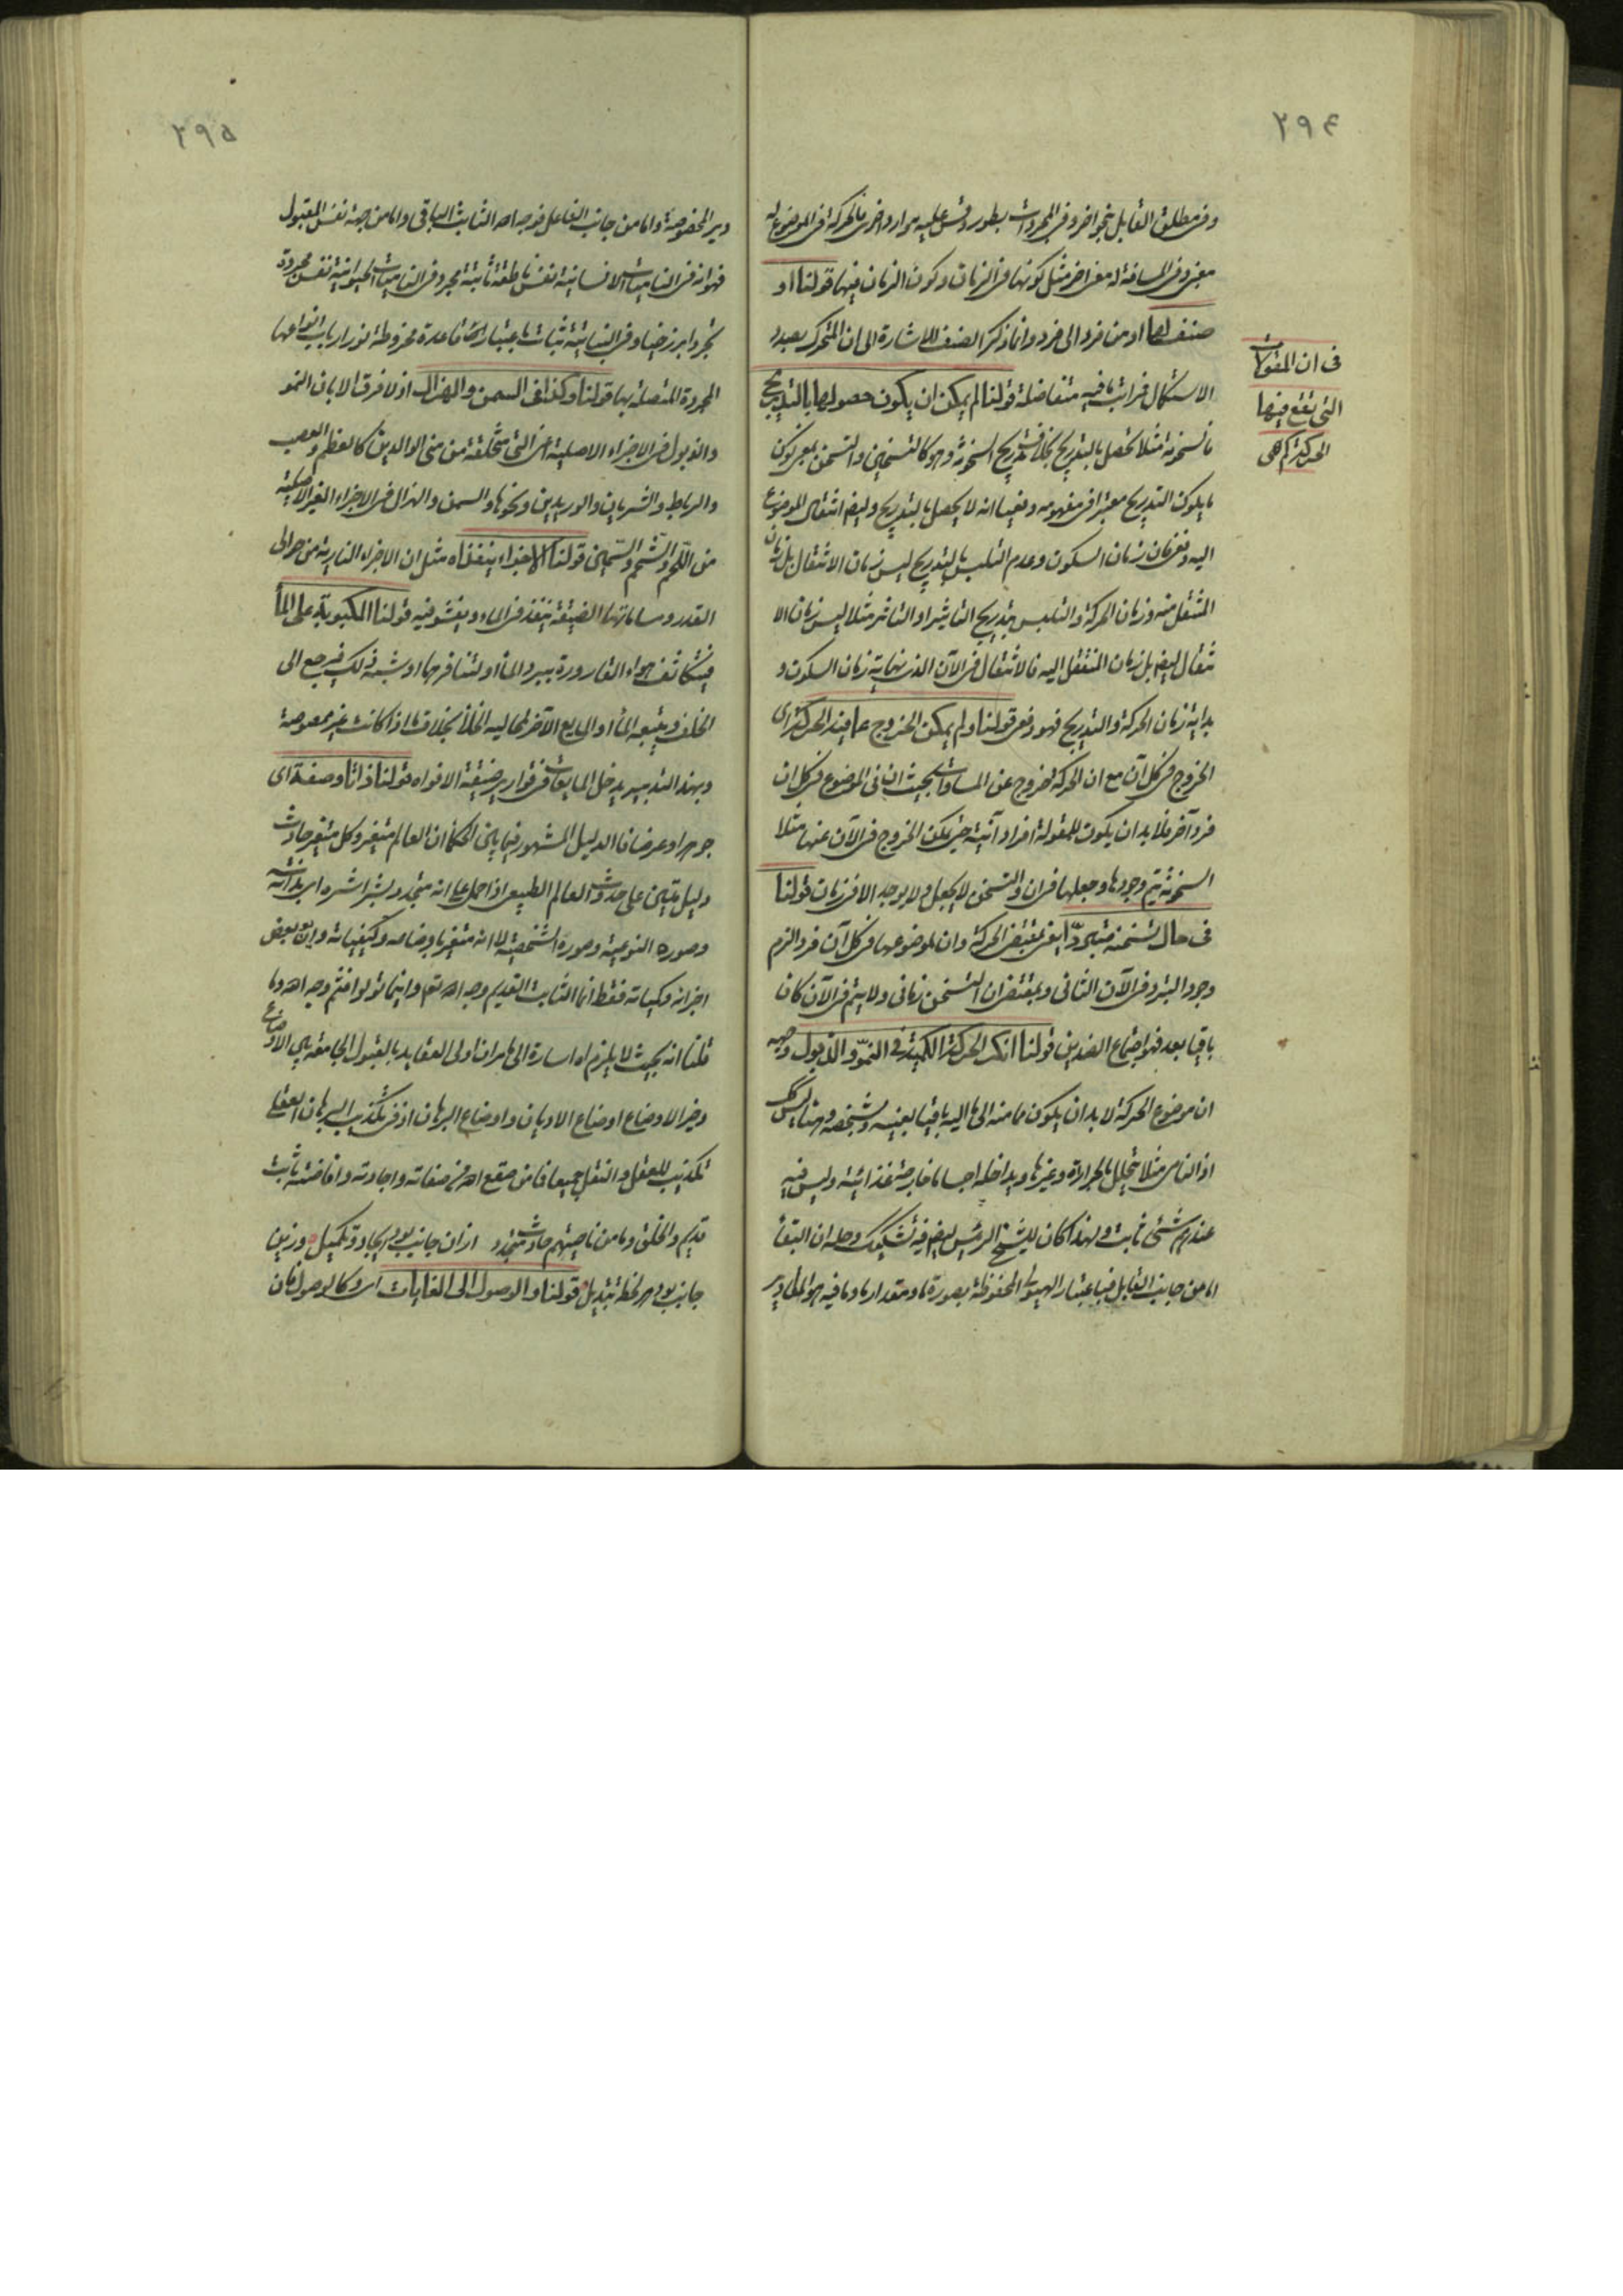 ٢٩٤
وفى مطلق القابل بنحو اخر وفى المجردات بطور وقس عليه موارد اخرى فالحركة فى الموضوع له
معنى وفى المسافة له معنى اخر مثل كونها فى الزمان وكون الزمان فيها قولنا او
صنف لها او من فرد الى فرد وانما ذكر الصنف للاشارة الى ان المتحرك بصدد
الاستكمال مراتب ما فيه متفاضلة قولنا لم يمكن ان يكون حصولها بالتدريج
فالسخونة مثلا تحصل بالتدريج بخلاف تدريج السخونة وهو كالتسخين والتسخن
ما يكون التدريج معتبرا فى مفهومه وفيها انه لا يحصل بالتدريج وايضا انتقال الموضوع
اليه فى زمان السكون وعدم التلبس بالتدريج ليس زمان الانتقال بل زمان
المنتقل منه وزمان الحركة والتلبس بتدريج التاثير او التاثر مثلا ليس زمان الا
نتقال ايضا بل زمان المنتقل اليه فالانتقال فى الآن الذى نهاية زمان السكون و
بداية زمان الحركة والتدريج فهو دفعى قولنا ولم يمكن الخروج عما فيه الحركة اى
الخروج فى كل آن مع ان الحركة خروج عن المساوات بحيث ان فى الموضوع فى كل ان
فرد آخر فلا بد ان يكون للمقولة افراد آنية حتى يمكن الخروج فى الآن عنها مثلا
السخونة يتم وجودها وجعلها فى ان والتسخن لا يجعل ولا يوجد الا فى زمان قولنا
فى حال تسخنه متبردا يعنى بمقتضى الحركة وان لموضوعها فى كل آن فرد الزم
وجود التبرد فى الآن الثانى وبمقتضى ان التسخن زمانى ولا يتم فى الآن كان
باقيا بعد فهو اجتماع الضدين قولنا انكر الحركة الكمية فى النمو والذبول وجهه
ان موضوع الحركة لا بد ان يكون مما منه الى ما اليه باقيا بعينه وشخصه وهنا ليس كك
اذ النامى مثلا يتحلل بالحرارة وغيرها ويداخله اجسام خارجة غذائية وليس فيه
عندهم شئ ثابت ولهذا كان للشيخ الرئيس ايضا فيه تشكيك وحله ان البقاء
اما من جانب القابل فباعتبار الهيولى المحفوظة بصورة ما ومقدار ما وما فيه هو المقادير
فى ان المقولات
التى تقع فيها
الحركة كم هى
٢٩٥
دير المخصوصة واما من جانب الفاعل فوجه الله الثابت الباقى واما من جهة نفس المقبول
فهو انه فى الناميات الانسانية نفس ناطقة ثابتة مجردة وفى الناميات الحيوانية نفس مجردة
تجردا برزخيا وفى النباتية نبات باعتبار انها قاعدة مخروطة نور ارباب انواعها
المجردة المتصلة بها قولنا وكذا فى السمن والهزال اذ لا فرق الا بان النمو
والذبول فى الاجزاء الاصلية اعنى التى متخلقة من منى الوالدين كالعظم والعصب
والرباط والشريان والوريدين ونحوها والسمن والهزال فى الاجزاء الغير الاصلية
من اللحم والشحم والسمين قولنا الاجزاء ينفذاه مثل ان الاجزاء النارية من حوالى
القدر ومساماتها الضيقة ينفذ فى الماء ويفشو فيه قولنا المكبوبة على الماء
فيتكاثف هواء القارورة ببرد الماء او لتنافرهما او شبه ذلك فيرجع الى
الخلف ويتبعه الماء او المايع الآخر لمحالية الخلأ بخلاف ما اذا كانت غير ممصوصة
وبهذا التدبير يدخل المايعات فى قوارير ضيقة الافواه قولنا ذاتا وصفة اى
جوهرا وعرضا فالدليل المشهور فيما بين الحكماء ان العالم متغير وكل متغير حادث
دليل متين على حدوث العالم الطبيعى اذا حمل على انه متجدد بشراشره اى بذاته
وصوره النوعية وصوره الشخصية لا انه متغير باوضاعه وكيفياته وان بعض
اجزائه وكمياته فقط انما الثابت القديم وجه الله تعم واينما تولوا فثم وجه الله وما
قلنا انه بحيث لا يلزم اه اشارة الى ما هو ان اولى العقايد بالقبول الجامعة بين الاوضاع
وخير الاوضاع اوضاع الاديان واوضاع البرهان اذ فى تكذيب البرهان العقلى
تكذيب للعقل والنقل جميعا فما من صقع الله من صفاته وايجاده وافاضته ثابت
قديم والخلق وما من ناحيتهم حادث متجدد ازان جانب بود ايجاد وتكميل وزين
جانب بود هر لحظه تبديل قولنا والوصول الى الغايات اى وكالوصول فان